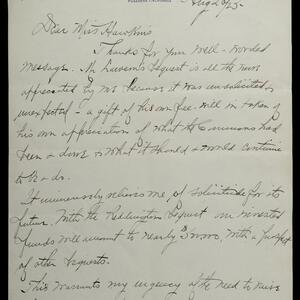 Aug 6/25-
Dear Miss Hawkins
Thanks for your well-worded
message. Mr bequest is all the more
appreciated by me because it was unsolicited &
unexpected - a gift of his own free-will in token of
his own appreciation of what the Commons had
been & done & what it should & would continue
to be & do.
It immensely relieves me of solicitude for its
future. With the bequest our invested
funds will amount to nearly with a prospect
of other bequests.
This warrants my urgency of the need to have